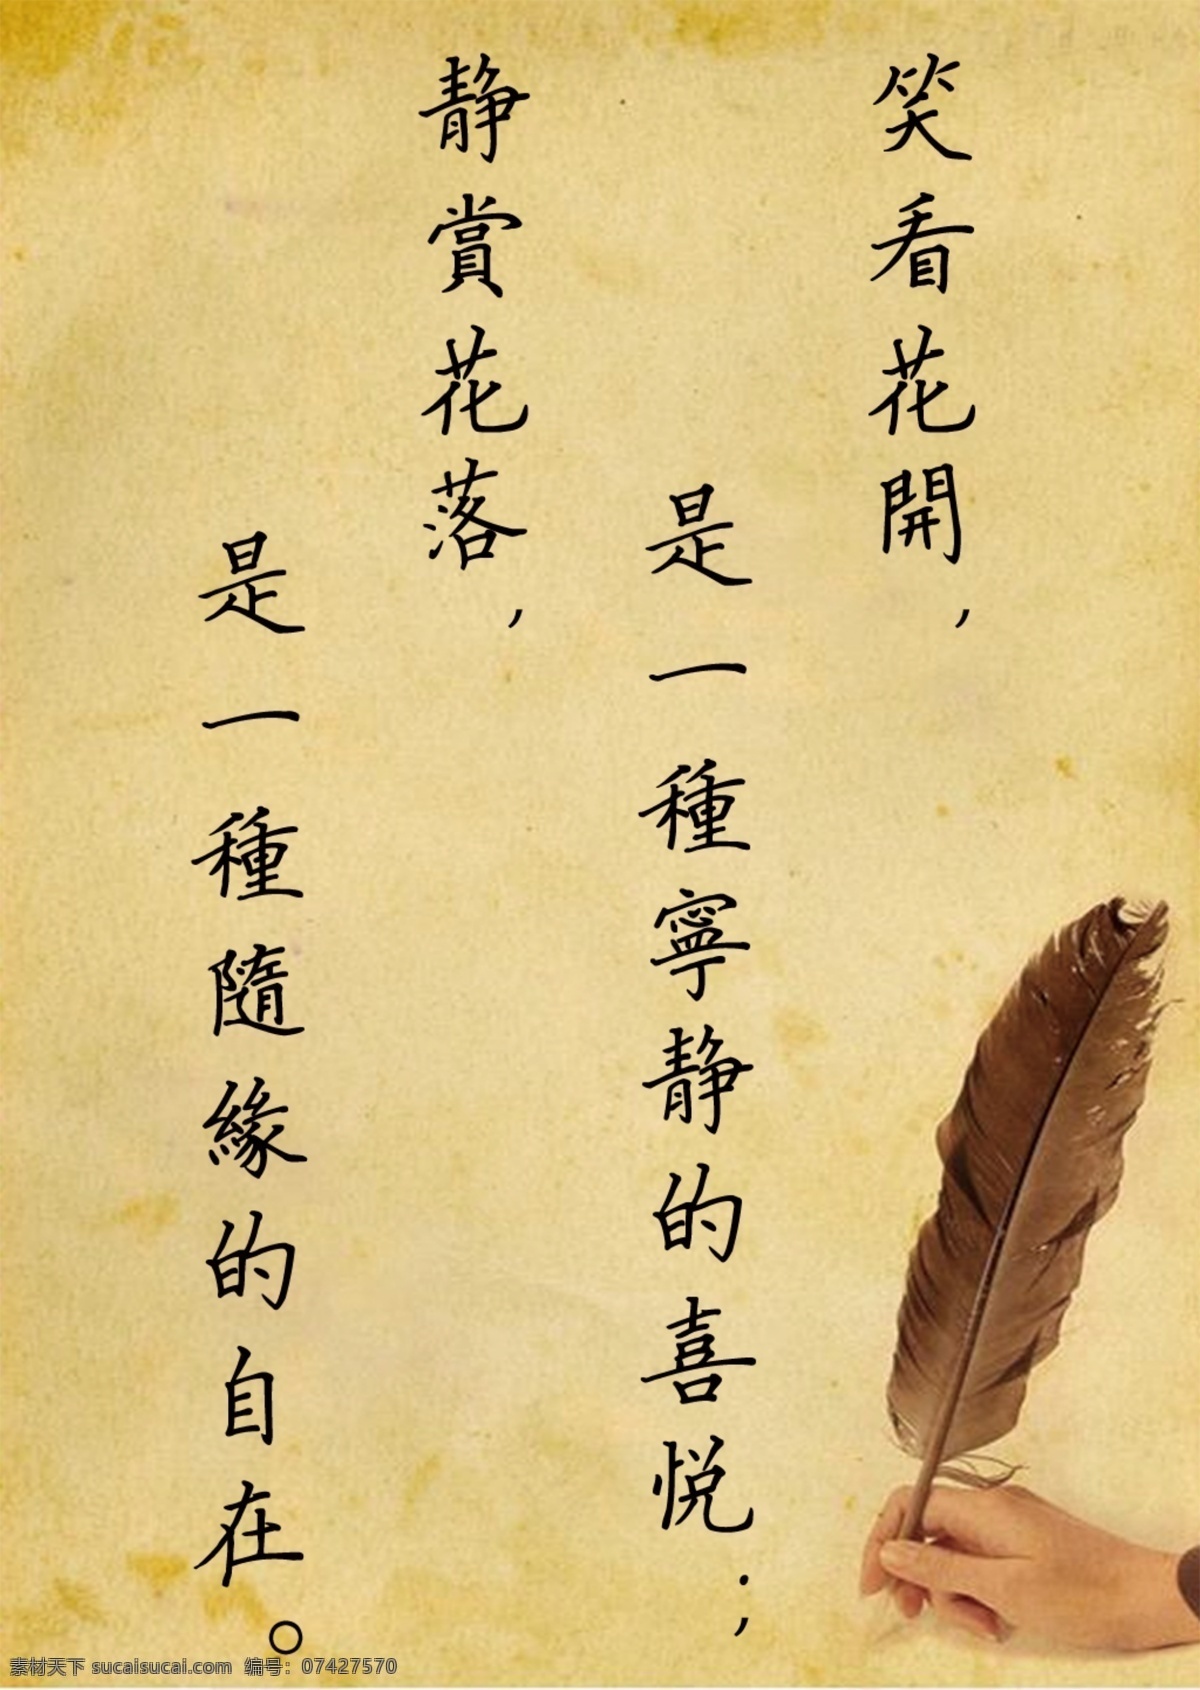 笑看花開，
是一種寧静的喜悅；
静賞花落，
是一種隨緣的自在。
素材天下 sucaisucai.com 编号：07427570